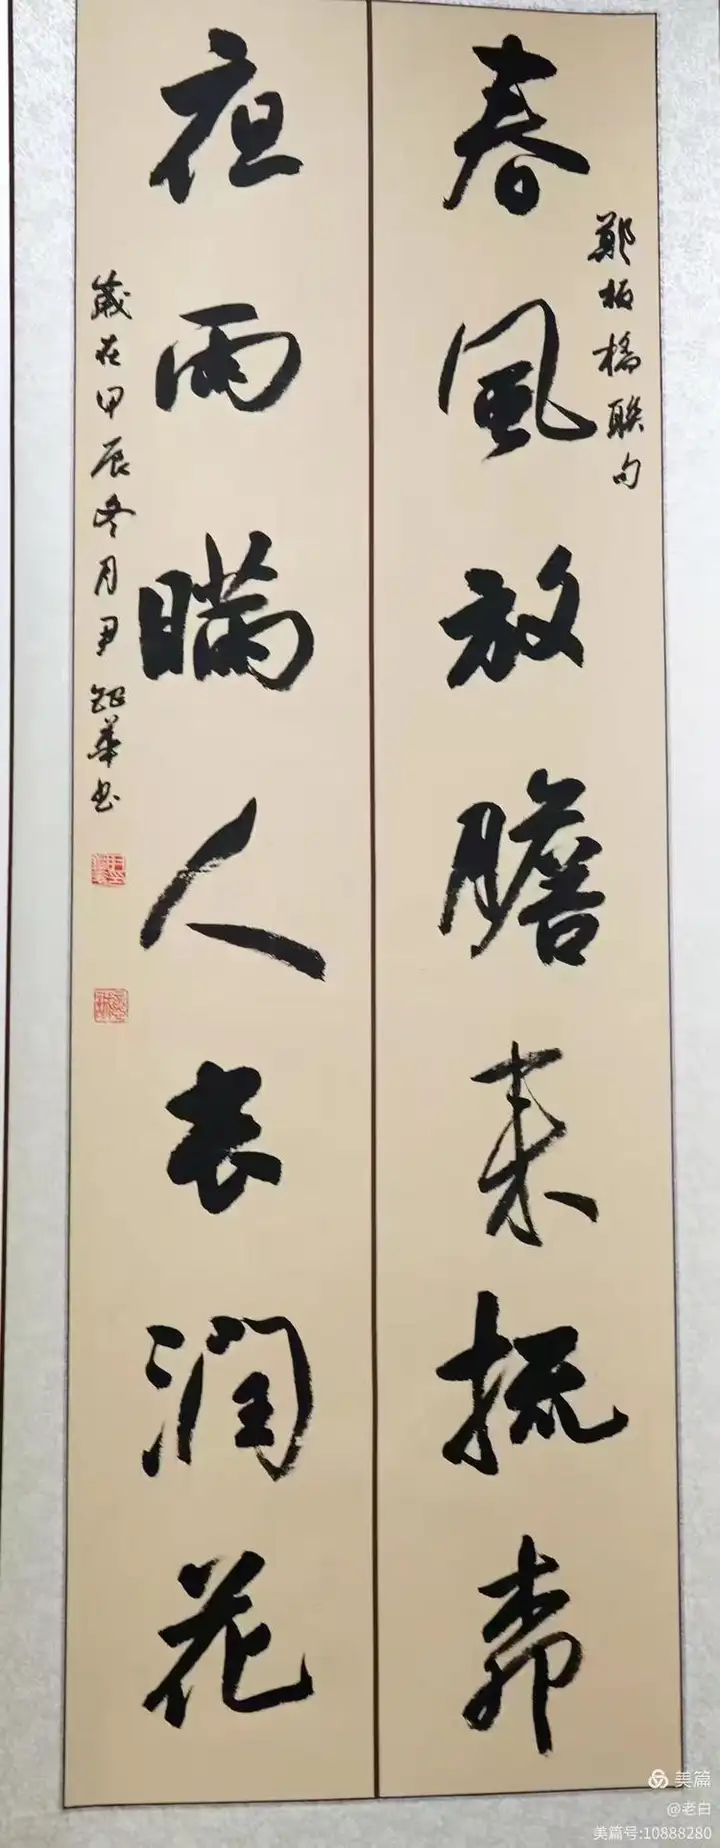 鄭板橋聯句
春風放膽来梳柳
夜雨瞞人去潤花
歲在甲辰冬月尹華书
美篇
@老白
美篇号:10888280